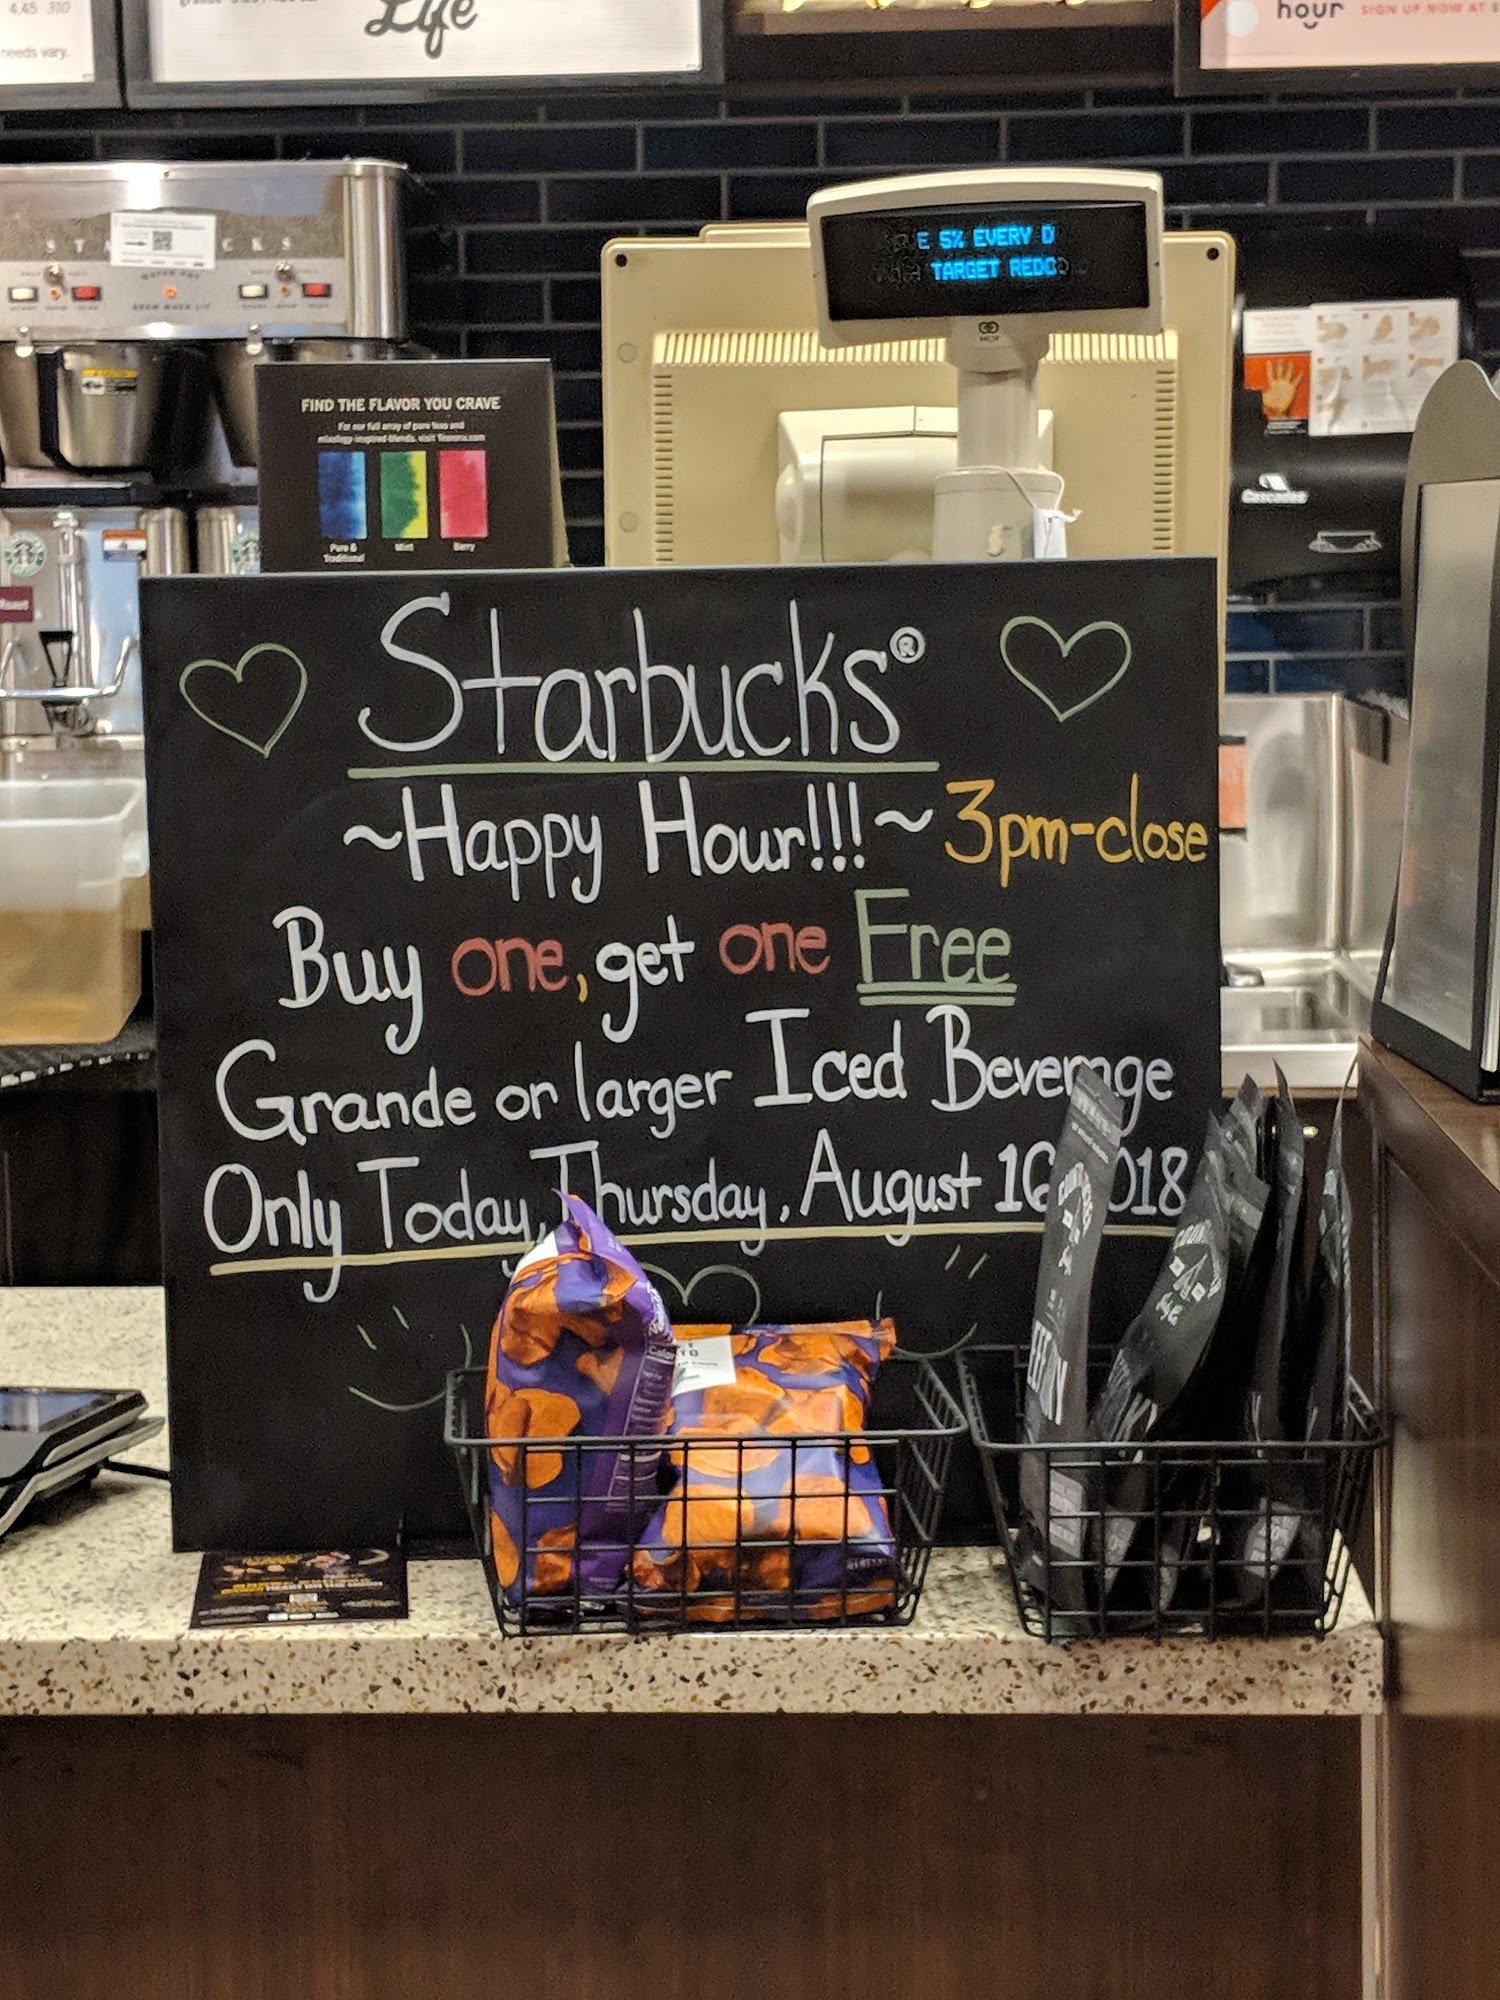 4.45 310
needs vary.
Life
hour SIGN UP NOW AT S
E 5% EVERY D
TARGET REDC
FIND THE FLAVOR YOU CRAVE
For our full array of pure teas and
mixology-inspired blends, visit teavana.com
Pure &
Traditional
Mint
Berry
Cascades
Starbucks®
~Happy Hour!!!~ 3pm-close
Buy one, get one Free
Grande or larger Iced Beverage
Only Today, Thursday, August 16 018